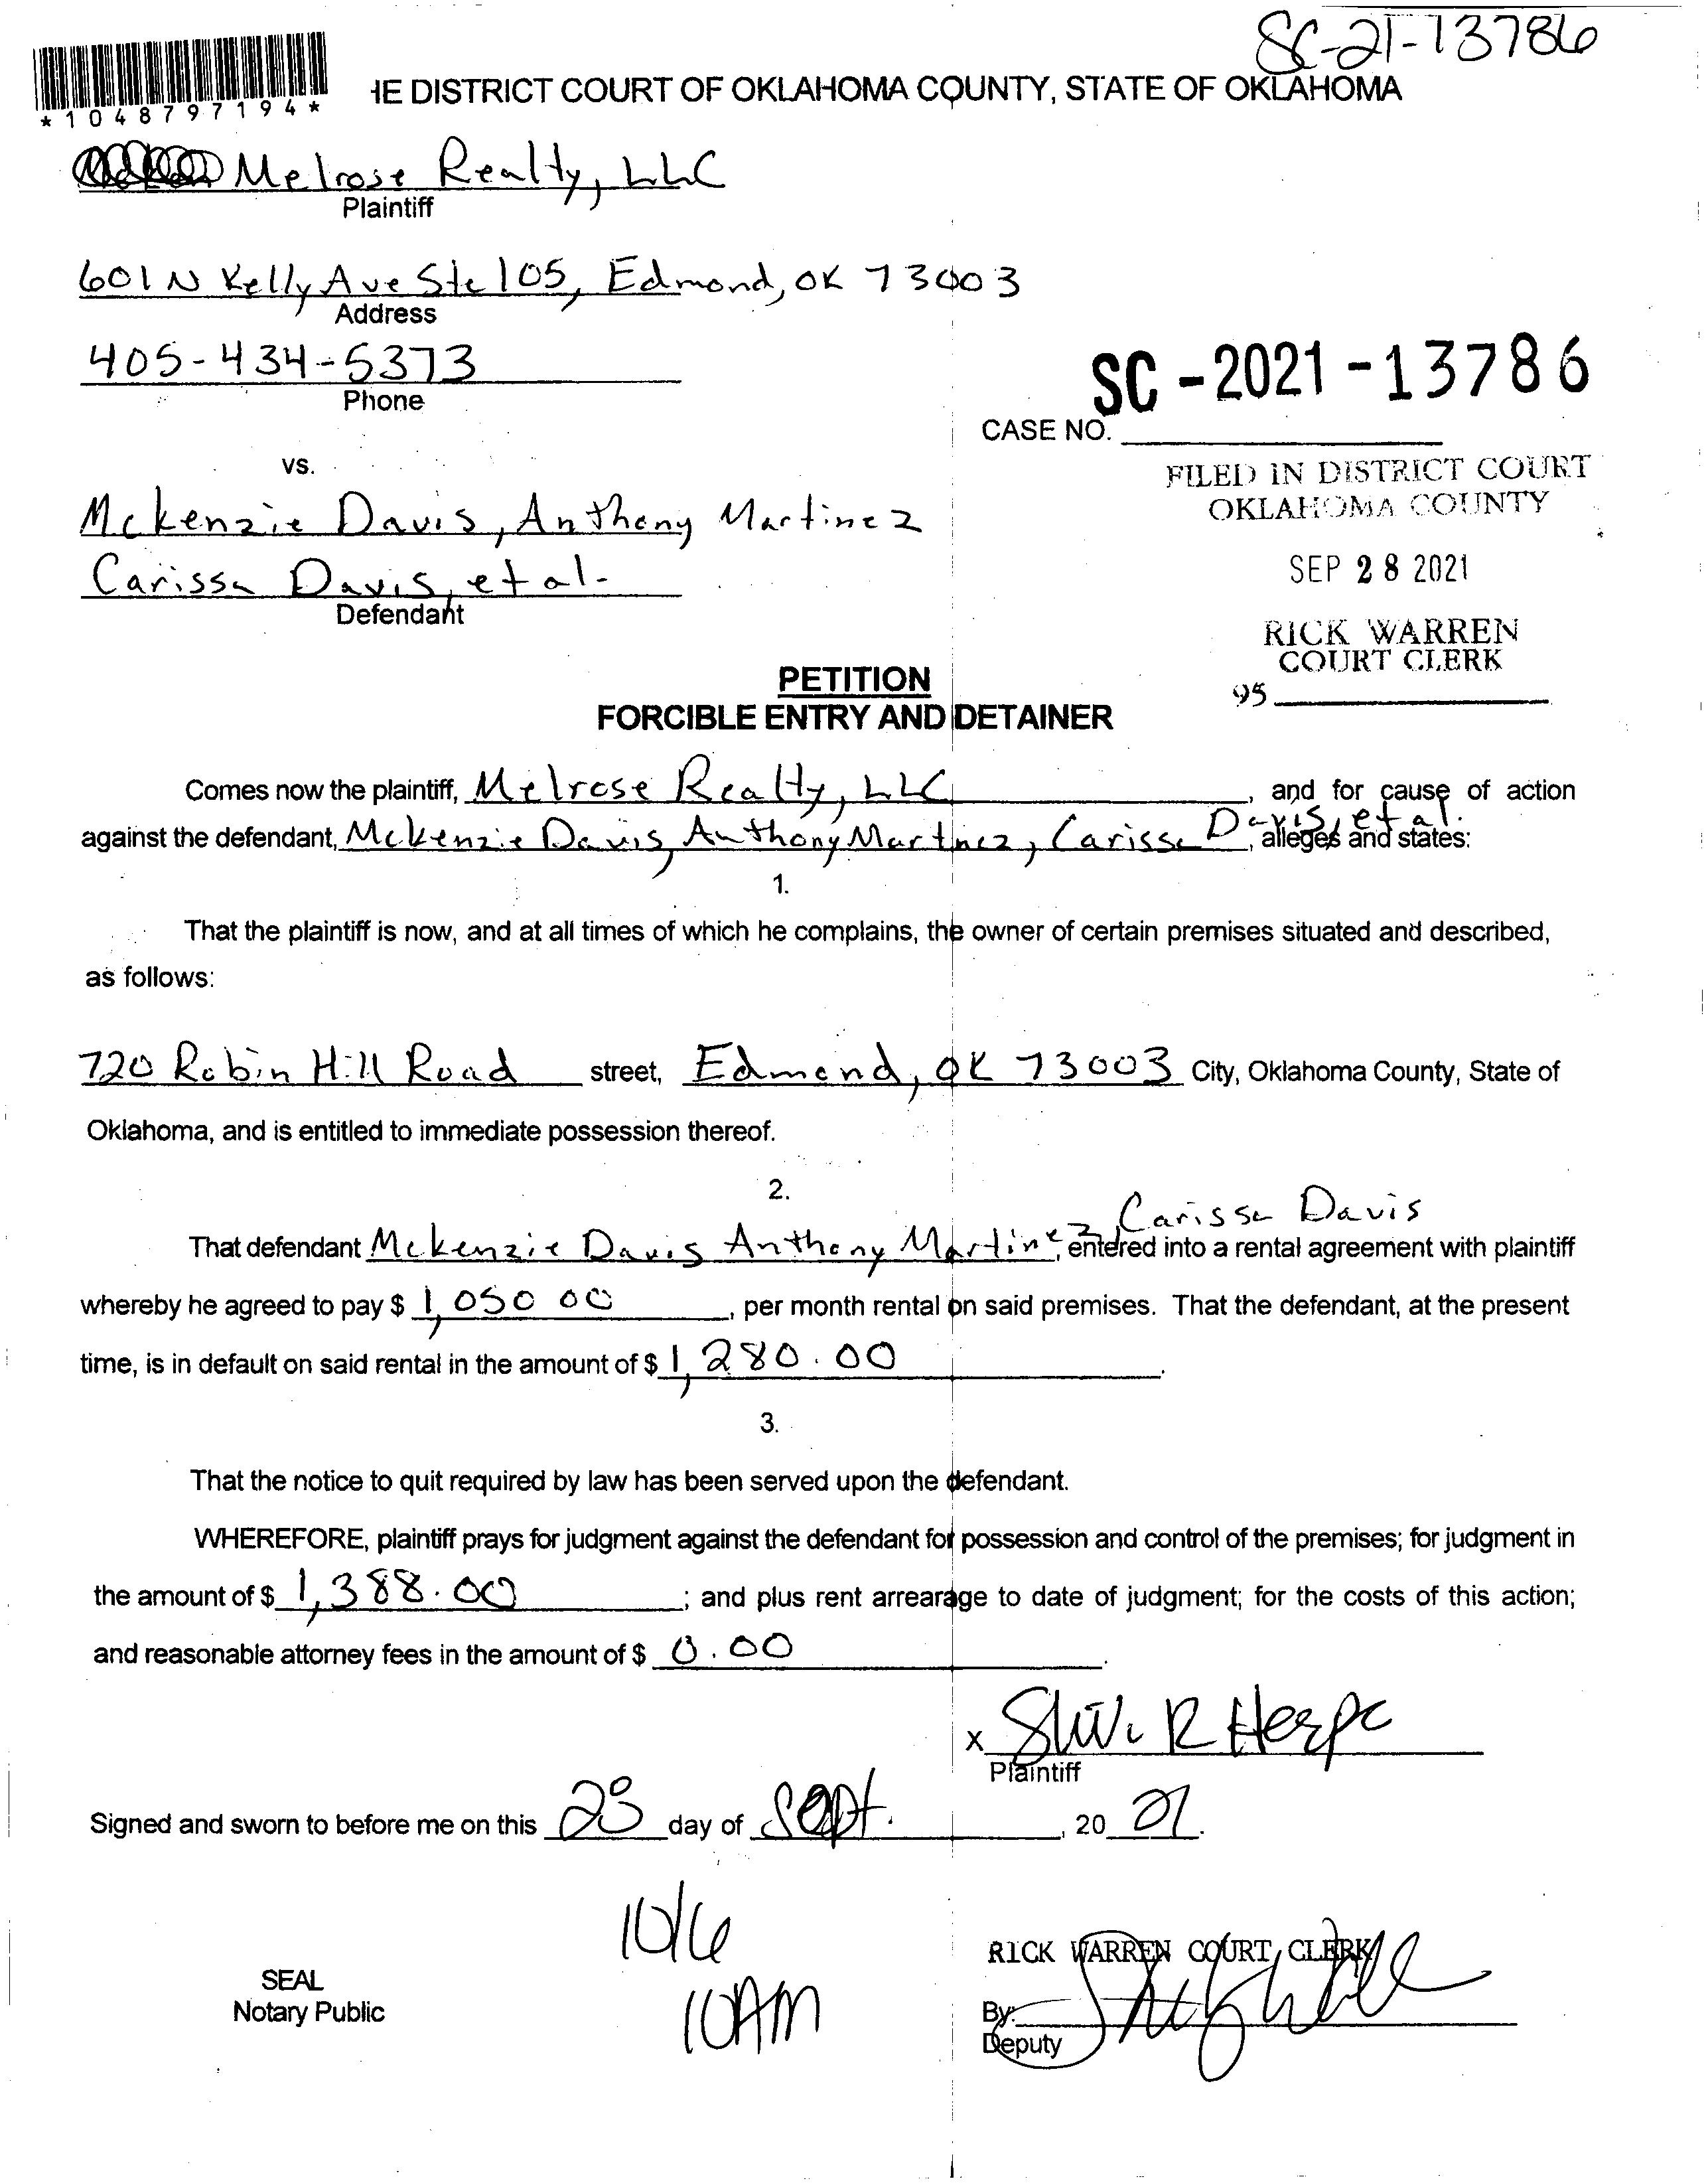 SC-21-13786
*1048797194*
HE DISTRICT COURT OF OKLAHOMA COUNTY, STATE OF OKLAHOMA
Melrose Realty, LLC
Plaintiff
601 N Kelly Ave Ste 105, Edmond, OK 73003
Address
405-434-5373
Phone
SC-2021-13786
CASE NO.
vs.
FILED IN DISTRICT COURT
OKLAHOMA COUNTY
Mckenzie Davis, Anthony Martinez
Carissa Davis, et al.
Defendant
SEP 28 2021
RICK WARREN
COURT CLERK
95
PETITION
FORCIBLE ENTRY AND DETAINER
Comes now the plaintiff, Melrose Realty, LLC, and for cause of action
against the defendant, Mckenzie Davis, Anthony Martinez, Carissa Davis, et al., alleges and states:
1.
That the plaintiff is now, and at all times of which he complains, the owner of certain premises situated and described,
as follows:
720 Robin Hill Road street, Edmond, OK 73003 City, Oklahoma County, State of
Oklahoma, and is entitled to immediate possession thereof.
2.
That defendant Mckenzie Davis Anthony Martinez, Carissa Davis, entered into a rental agreement with plaintiff
whereby he agreed to pay $ 1,050 00, per month rental on said premises. That the defendant, at the present
time, is in default on said rental in the amount of $ 1,280.00.
3.
That the notice to quit required by law has been served upon the defendant.
WHEREFORE, plaintiff prays for judgment against the defendant for possession and control of the premises; for judgment in
the amount of $ 1,388.00; and plus rent arrearage to date of judgment; for the costs of this action;
and reasonable attorney fees in the amount of $ 0.00.
X
Plaintiff
Signed and sworn to before me on this 28 day of Sept., 20 21.
10/6
10AM
SEAL
Notary Public
RICK WARREN COURT CLERK
By:
Deputy